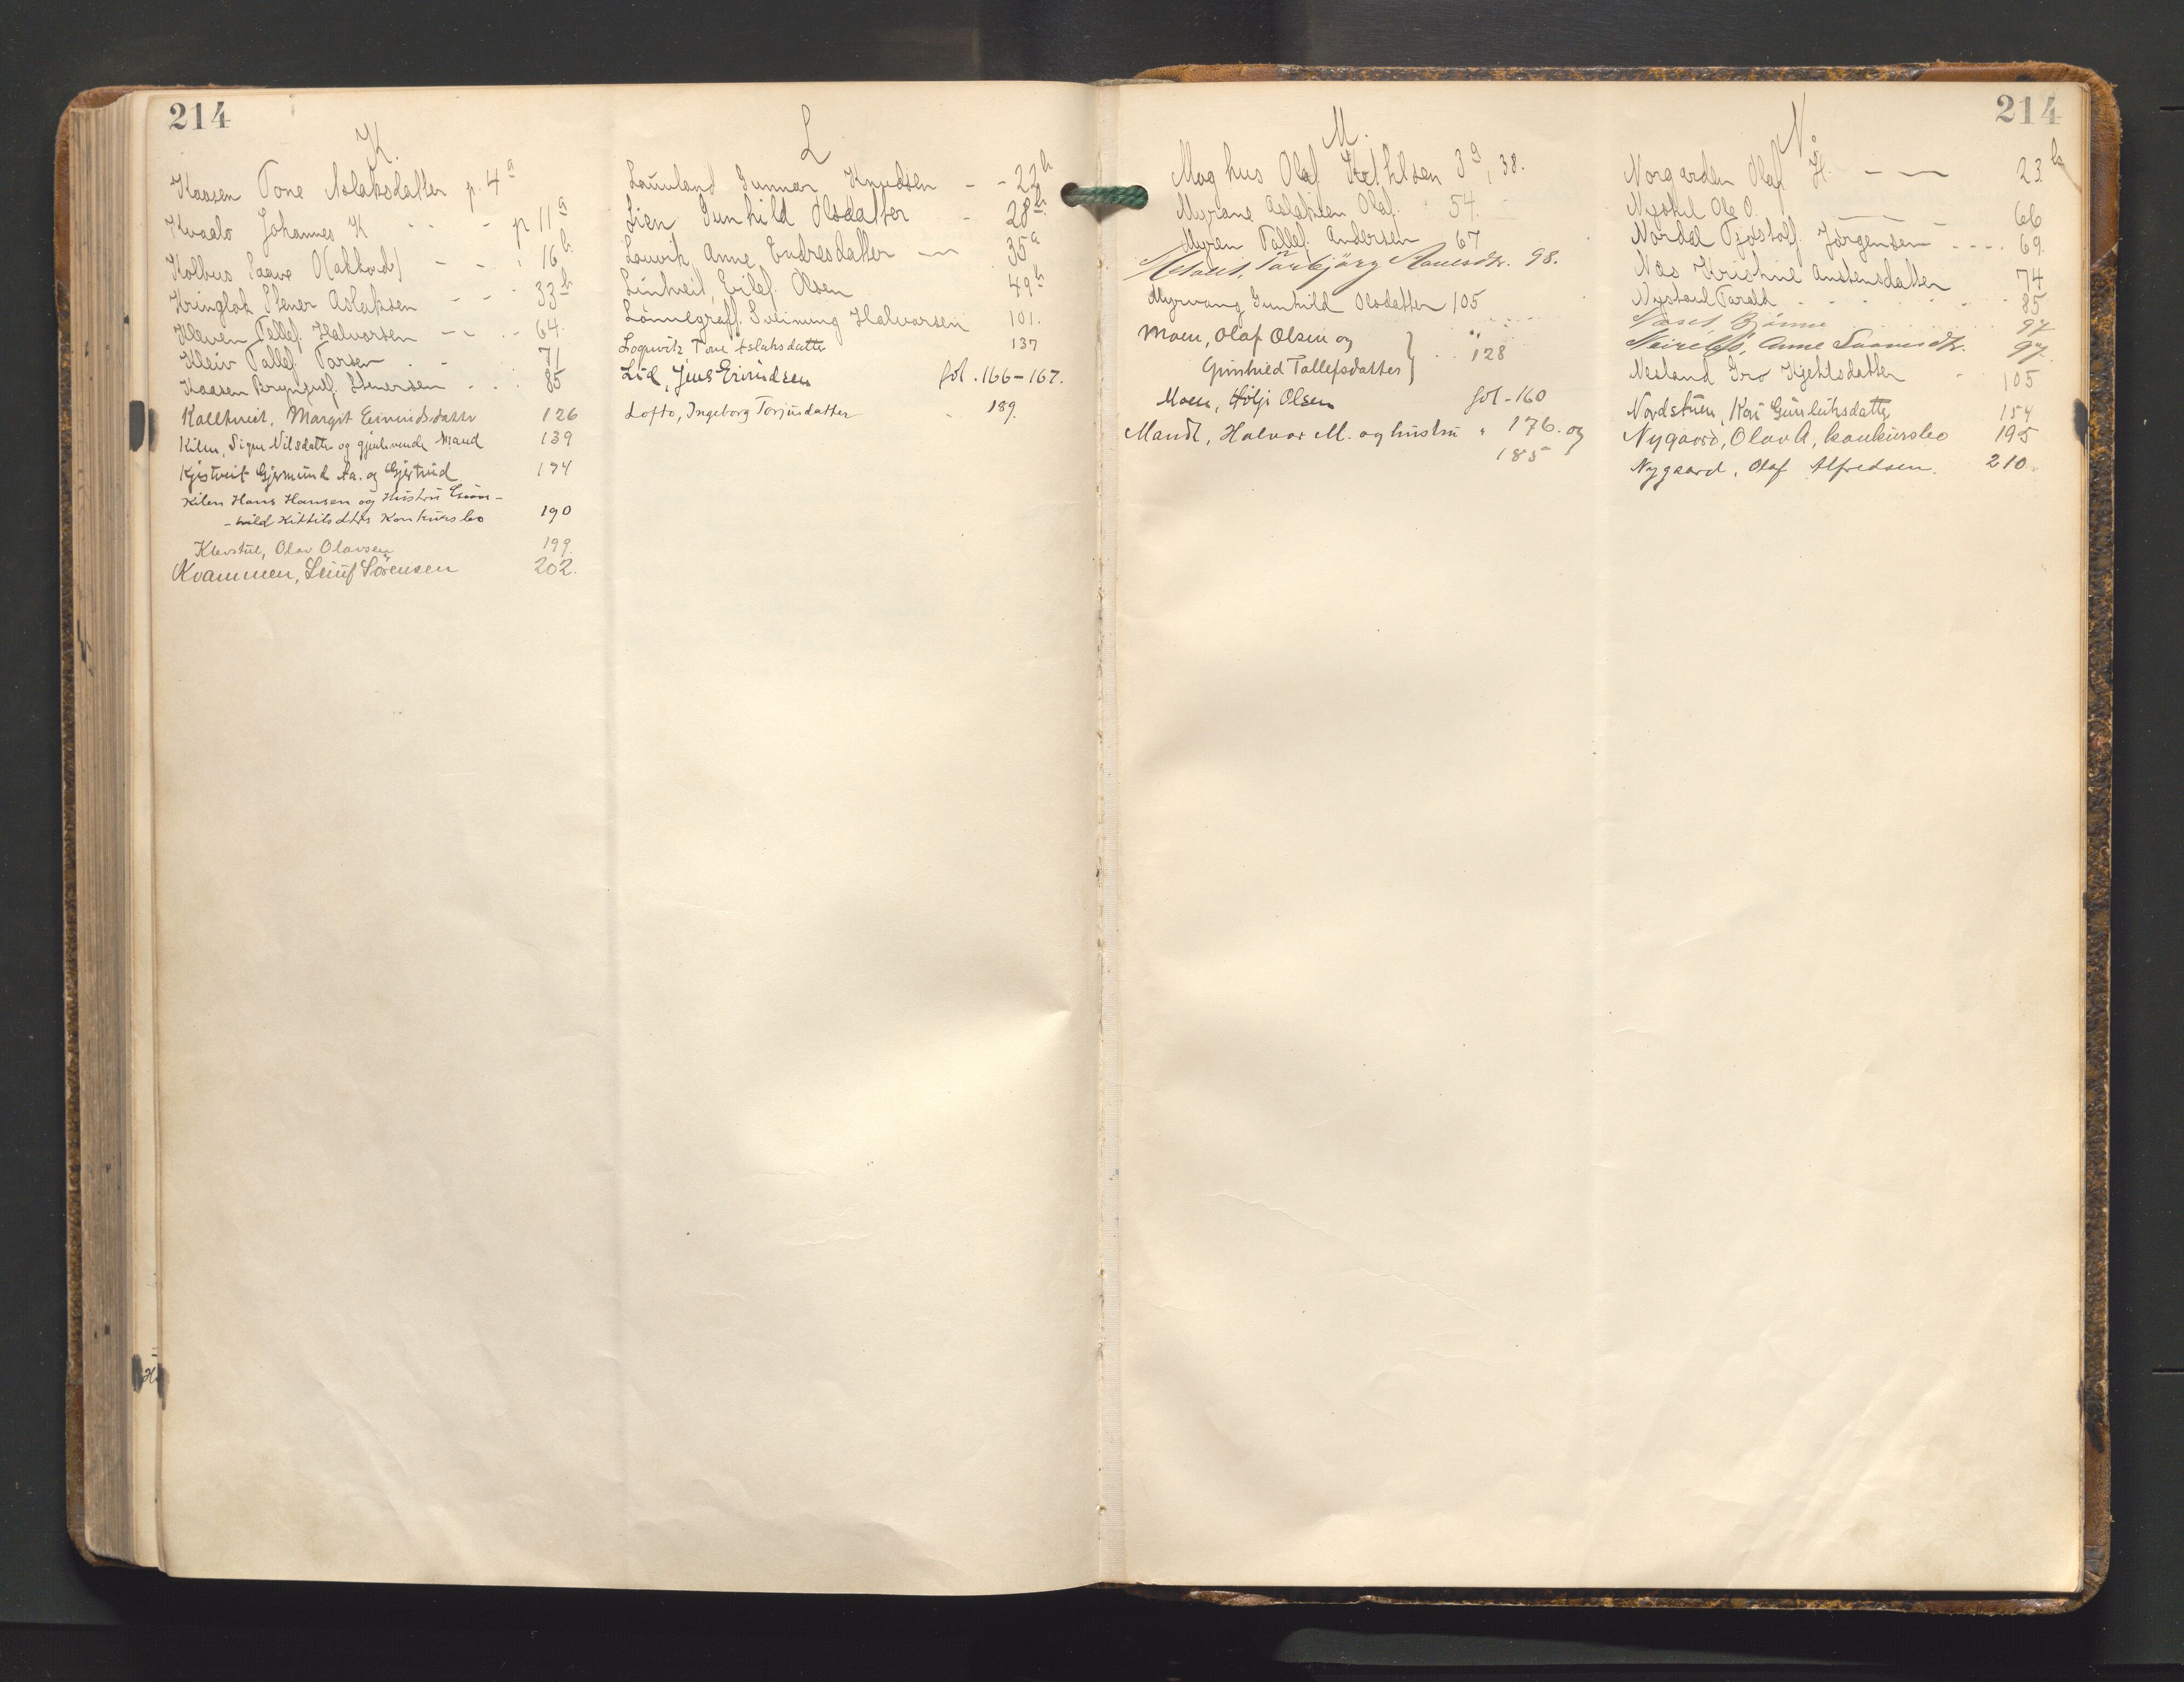 214
K.
Kaasen Tone Aslaksdatter p. 4a
Kvaalo Johannes K - - - p 11a
Kolbus Saave O (akkord) - - - 16b
Kringlak Stener Aslaksen - - 33b
Kleven Tellef Halvorsen - - - 64.
Kleiv Tallef Tarsen - - 71
Kaasen Brynjulf Stenersen - - - 85
Kalltveit, Margit Eivindsdatter 126
Kilen, Signe Nilsdatter og gjenlevende Mand 139
Kjistveit Gjermund Aa. og Gjertrud 174
Kilen Hans Hansen og Hustru Gun-
-hild Kittilsdtrs Konkursbo 190
Klevstul, Olav Olavsen 199.
Kvammen, Leiuf Sørensen 202.
L
Lauvland Gunnar Knudsen - - 22b
Lien Gunhild Olsdatter - 28b
Lauvik Anne Endresdatter - - 35a
Lintveit, Eilef Olsen 49b
Lönnegraff. Sveinung Halvorsen 101.
Logevik Tone Aslaksdatter 137
Lid, Jens Eivindsen fol. 166-167.
Lofto, Ingeborg Torjusdatter - 189.
214
M.
Moghus Olaf Ketilsen 3a, 38.
Myrane Aslaksen Olaf. 54.
Myren Tallef Andersen 67
Torbjørg 98.
Myrvang Gunhild Olsdatter 105
Moen, Olaf Olsen og
Gunhild Tallefsdatter } " 128
Moen, Hölje Olsen fol - 160
Mandt, Halvor M. og hustru " 176. og
185
N.
Norgarden Olaf H. - - 23b
Nystul Ole O. - 66
Nordal Tjostolf Jörgensen - - - - 69.
Næs Kristine Anstensdatter 74
Nystaul Tarald - - - - - 85
Næset, Bjönne 97
Anne 97.
Nesland Gro Kjetilsdatter - 105
Nordstuen, Kari Gunleiksdatter 154
Nygaard, Olav A, konkursbo 195
Nygaard, Olaf Alfredsen. 210.